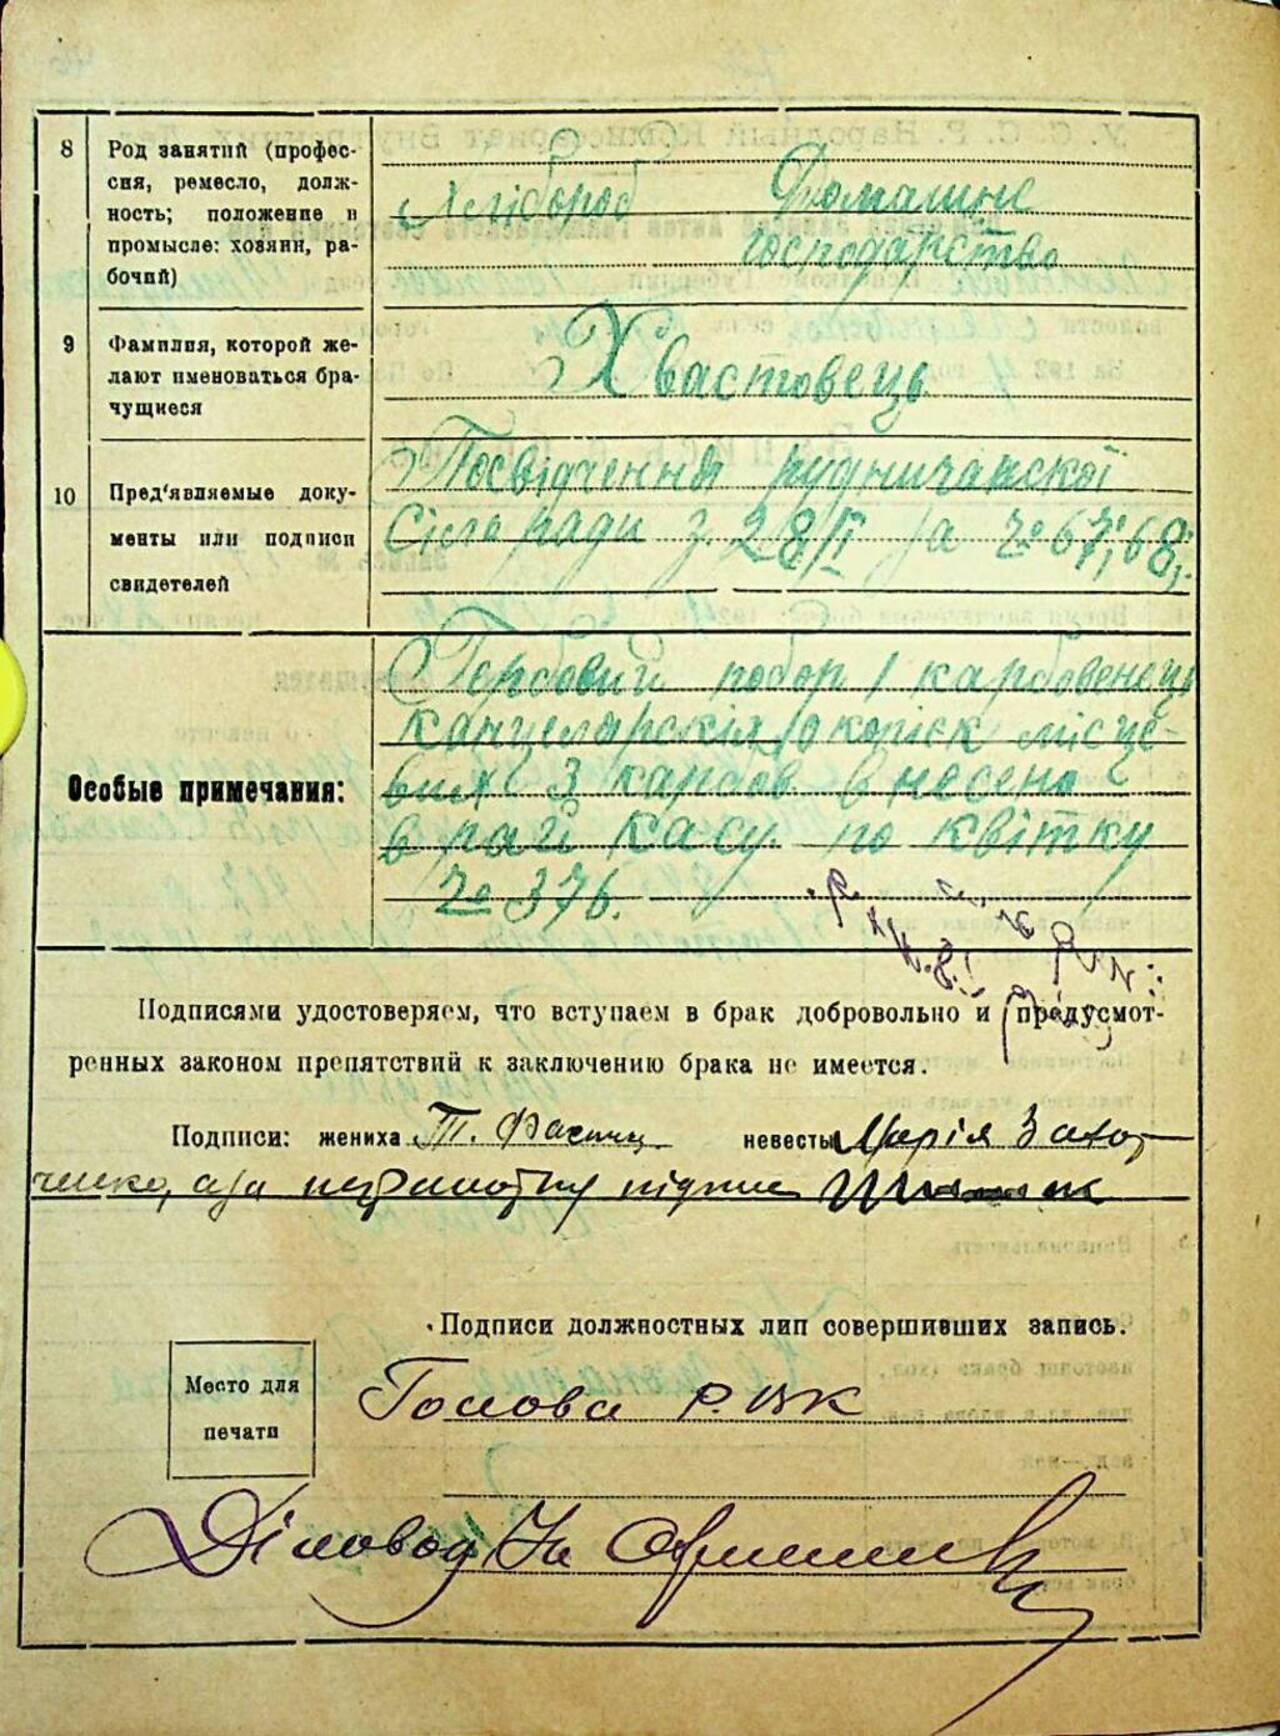 8 Род занятий (профес-
сия, ремесло, долж-
ность; положение в
промысле: хозяин, ра-
бочий)
Хлібороб Домашнє
господарство
9 Фамилия, которой же-
лают именоваться бра-
чущиеся
Хвастовець
10 Пред'являемые доку-
менты или подписи
свидетелей
Посвідчення
Сільради з. 28/І за № 67, 68.
Особые примечания:
Гербовий побор 1 карбованець
канцелярскія 10 копієк місце-
вих 3 карбов. внесено
в рай касу по квітку
№ 376.
Подписями удостоверяем, что вступаем в брак добровольно и предусмот-
ренных законом препятствий к заключению брака не имеется.
Подписи: жениха Т. невесты Марія
ченко, а за неграмотну підпис
Подписи должностных лип совершивших запись.
Место для
печати
Голова Р.ВК
Діловод